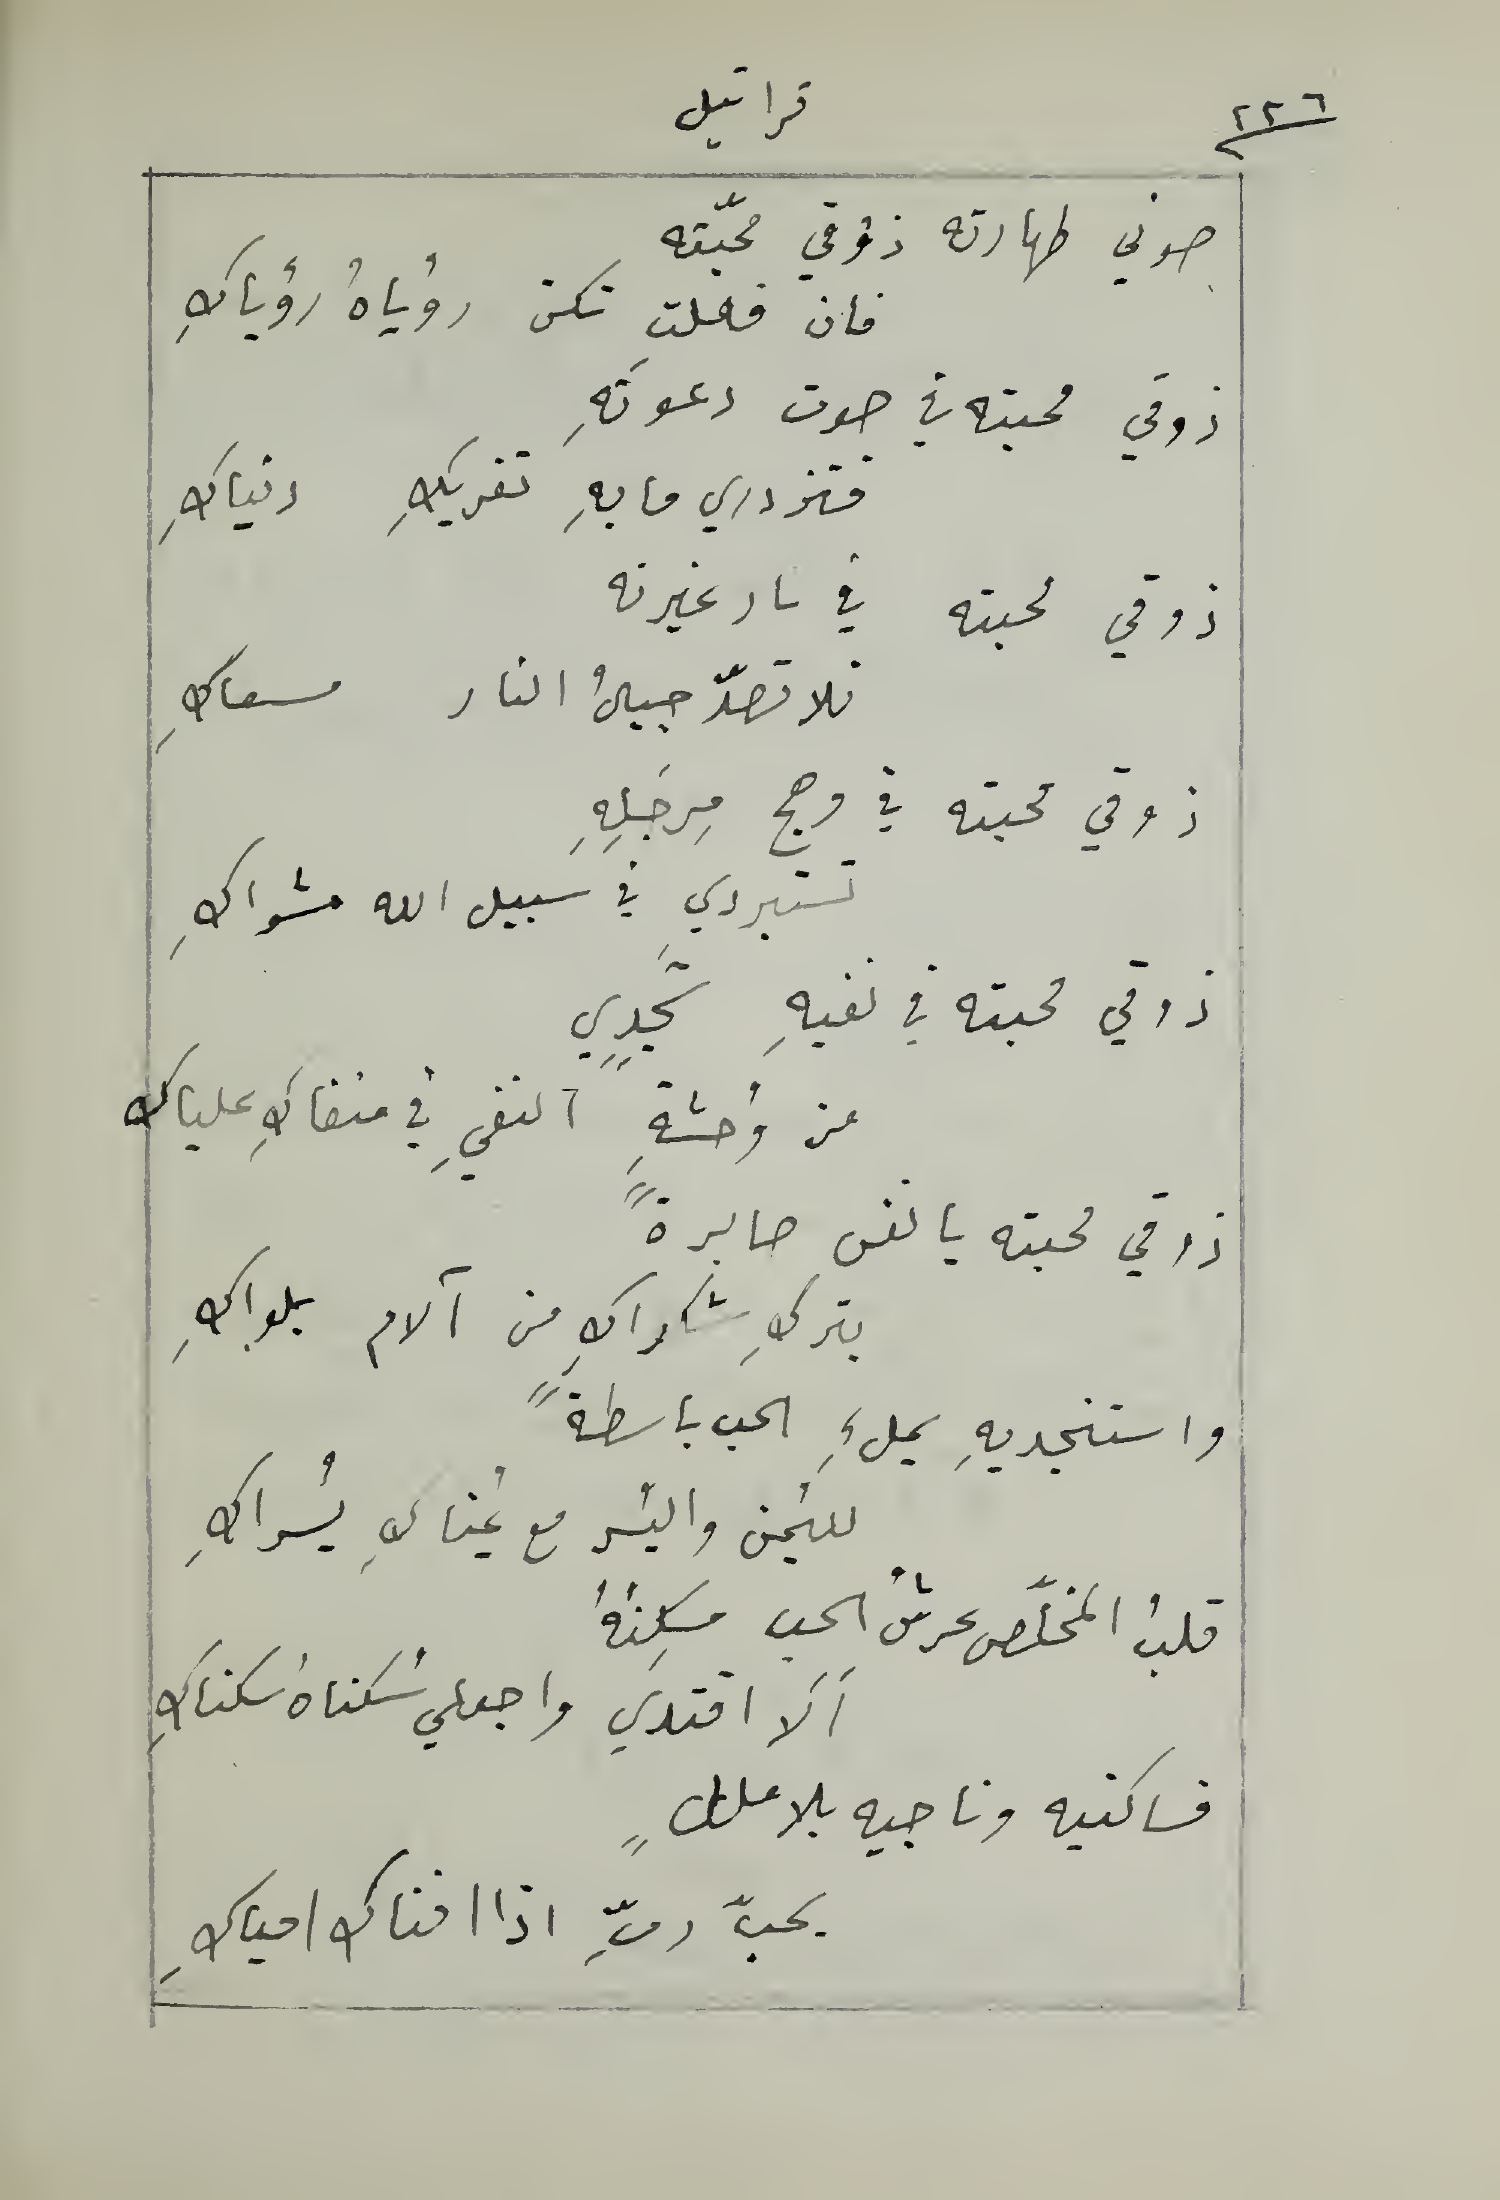 ٢٢٦
قراتيل
صوني طهارته ذوقي محبّته
فان فعلتِ تكن رؤياهُ رؤياكِ
ذوقي محبته في صوت دعوتهِ
فتزدري ما بهِ تغريكِ دنياكِ
ذوقي محبته في نار غيرته
فلا تصدّ جبالُ النار مسعاكِ
ذوقي محبته في وهج مِرجَلِهِ
تستبردي في سبيل الله مشواكِ
ذوقي محبته في نفيهِ تَجِدي
عن وُحشةِ النفيِ في منفاكِ علياكِ
ذوقي محبته يا نفس صابرةً
بتركِ شكواكِ من آلام بلواكِ
واستنجديهِ بملءِ الحب باسطةً
لليُمن واليُسر مع يُمناكِ يُسراكِ
قلبُ المخلّص عرشُ الحب مسكِنهُ
أَلَا اقتدي واجعلي سُكناهُ سُكناكِ
فساكنيه وناجيه بلا مللٍ
بحبّ ربٍّ اذا افناكِ احياكِ